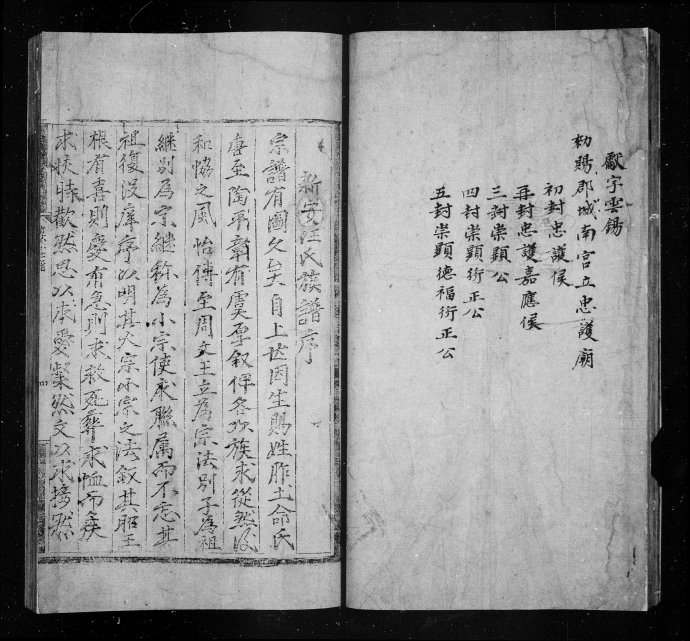 獻字雲錫
勑賜郡城南宮立忠護廟
初封忠護侯
再封忠護嘉應侯
三封崇顯公
四封崇顯衍正公
五封崇顯德福衍正公
新安汪氏族譜序
宗譜有圖久矣自上世因生賜姓胙土命氏
唐至陶平章有虞厚叙俾各以族求從然後
和協之風怡傳至周文王立為宗法別子為祖
繼別為宗繼祢為小宗使求聯属而不忘其
祖復設庠序以明其大宗小宗之法叙其昭王
根有喜則慶有急則求救死葬求恤而疾
求扶時歡然思以求愛粲然文以求接然